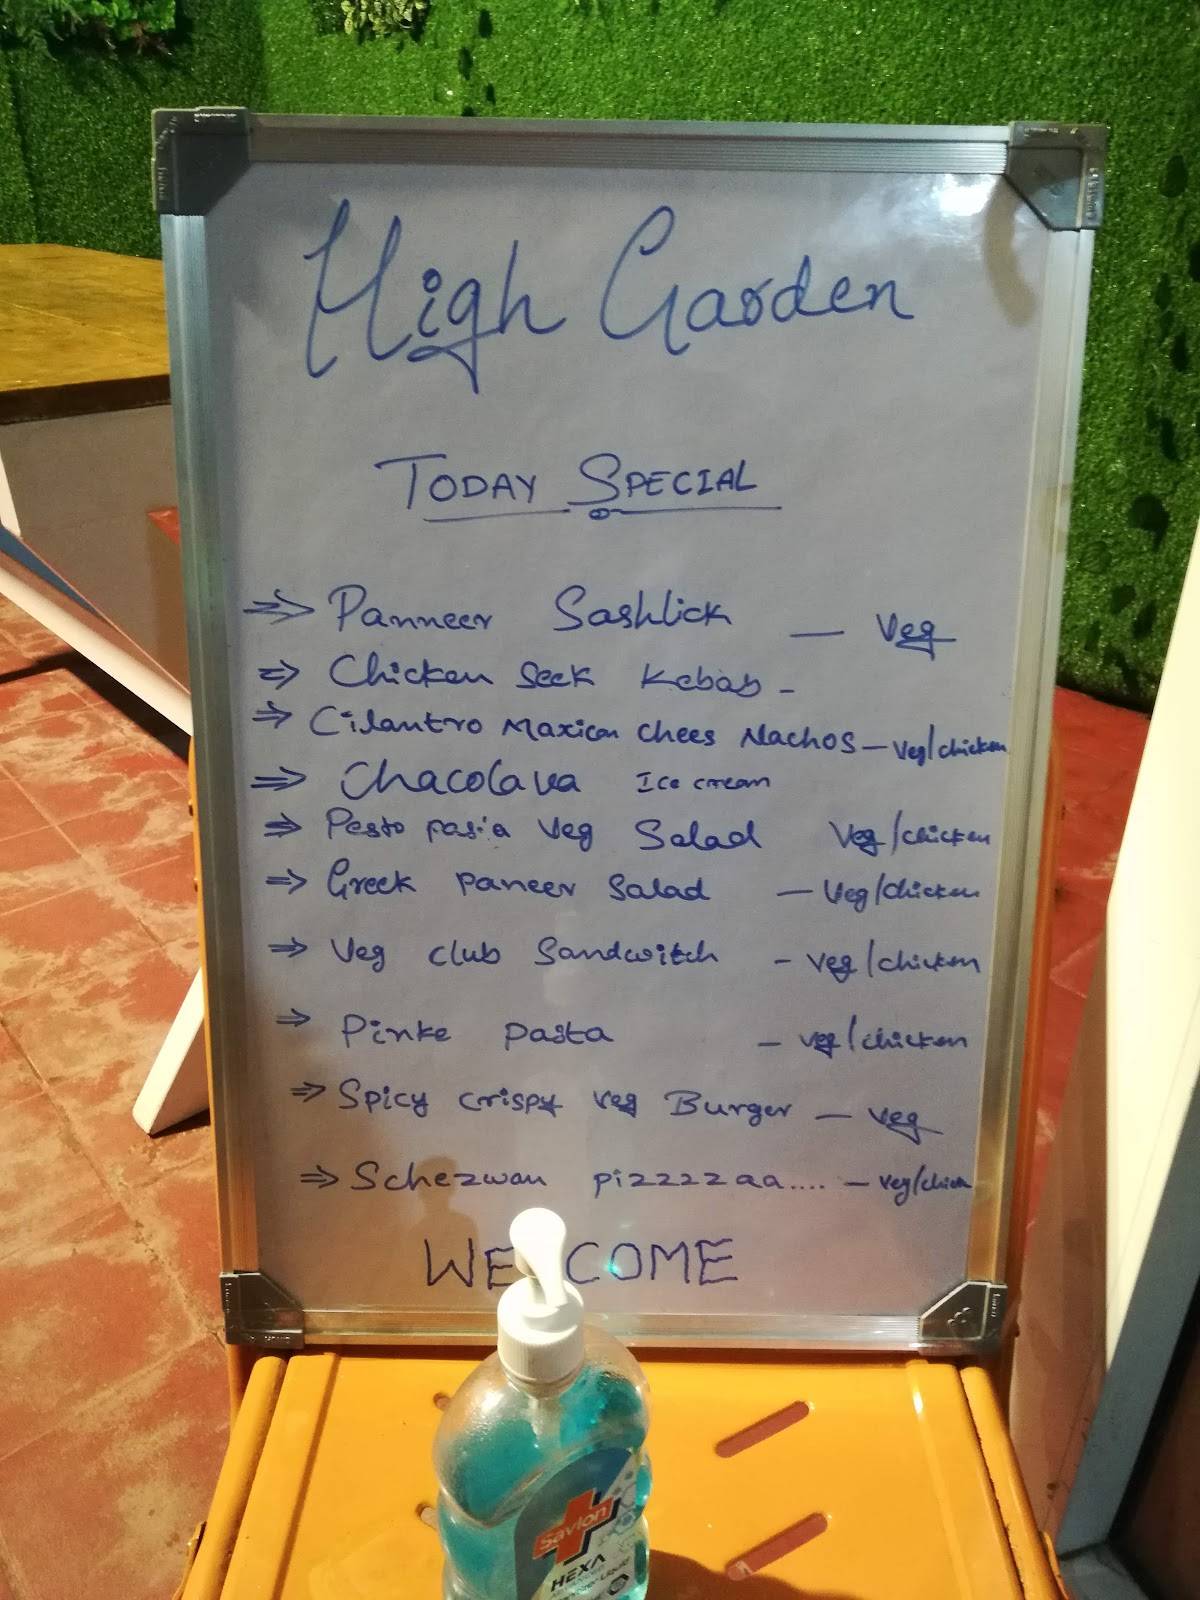 High Garden
TODAY SPECIAL
⇒ Panneer Sashlick — Veg
⇒ Chicken Seek Kebab -
⇒ Cilantro Maxican Chees Nachos — Veg/chicken
⇒ Chacolava Ice cream
⇒ Pesto pasta Veg Salad Veg/chicken
⇒ Greek paneer Salad — Veg/chicken
⇒ Veg club Sandwitch - Veg/chicken
⇒ Pinke pasta — veg/chicken
⇒ Spicy crispy veg Burger — veg
⇒ Schezwan pizzzzaa.... — veg/chicken
WELCOME
Savlon
HEXA